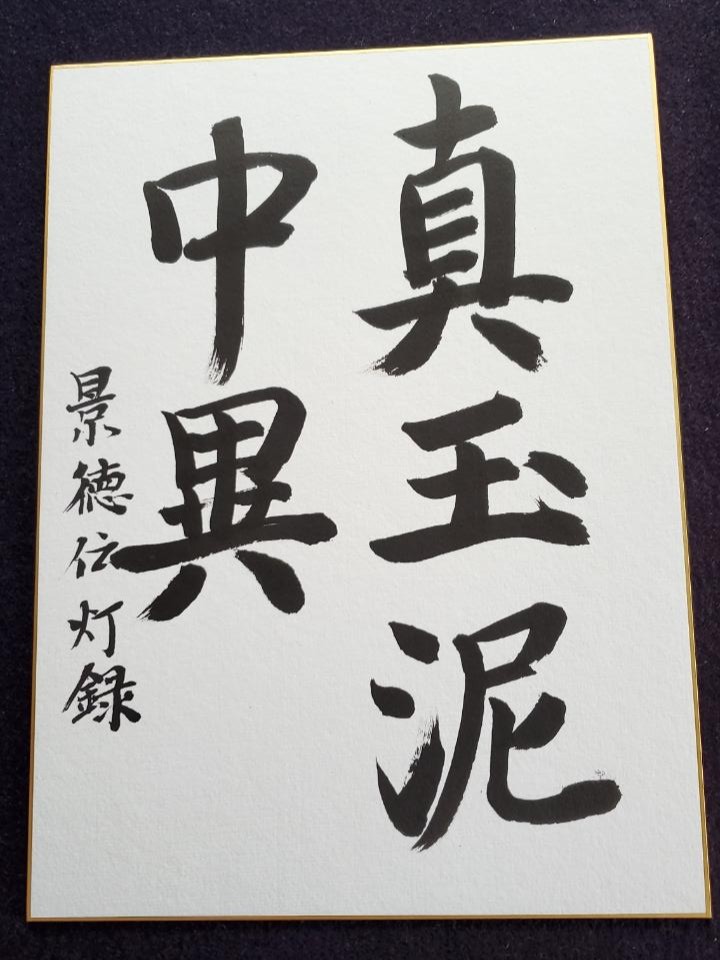 真玉泥
中異
景徳伝灯録